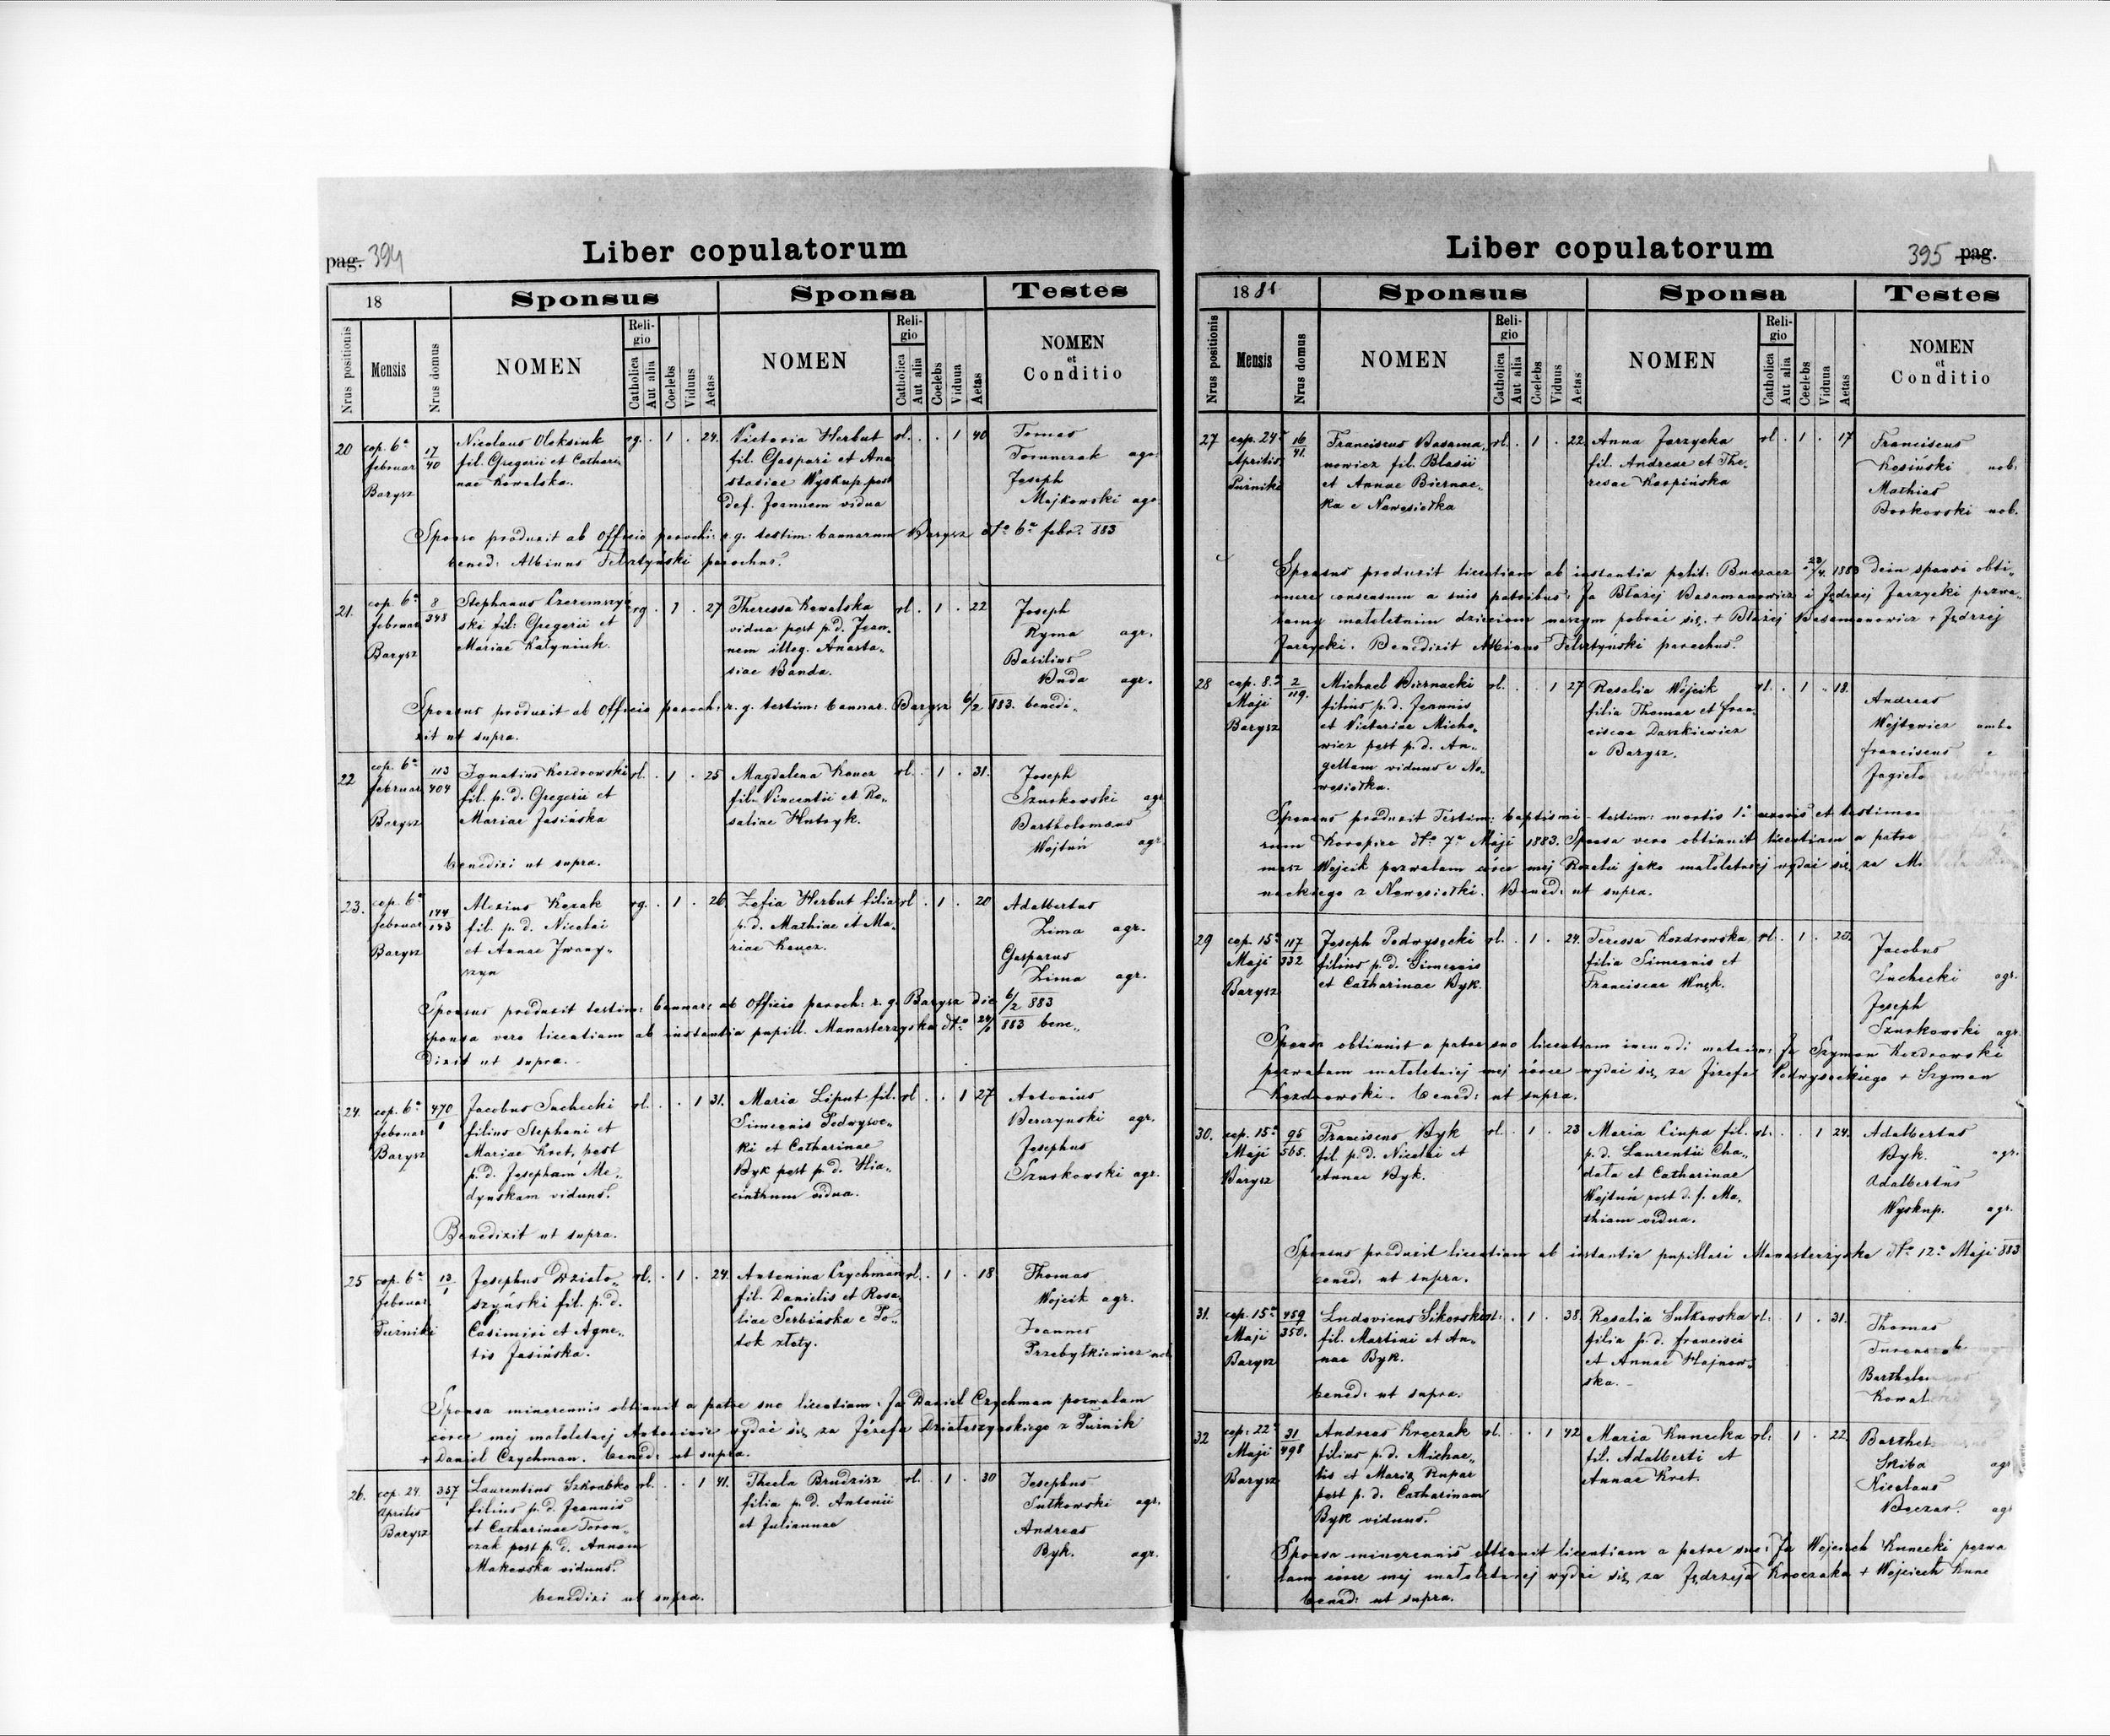 pag. 394
Liber copulatorum
18
Sponsus
Sponsa
Testes
Nrus positionis
Mensis
Nrus domus
NOMEN
Religio
Catholica
Aut alia
Coelebs
Viduus
Aetas
NOMEN
Religio
Catholica
Aut alia
Coelebs
Vidua
Aetas
NOMEN
et
Conditio
20 cop. 6a februar Barysz 17/40
Nicolaus Oleksiuk rg. 1 24.
fil. Gregorii et Cathari
nae Kowalska.
Victoria Herbut rl. 1 40
fil. Gaspari et Ana
stasiae Wyskup post
def. Joannem vidua
Tomas
agr.
Joseph
Majkowski agr.
Sponso produxit ab Officio paroch: r. g. testim: bannorum Barysz dto 6a febr. 883
bened: Albinus Felsztyński parochus.
21. cop. 6a februar Barysz 8/348
Stephanus rg 1 27
ski fil: Gregorii et
Mariae Katyniuk.
Theressa Kowalska rl. 1 22
vidua post p. d. Joan„
nem illeg. Anasta„
siae Banda.
Joseph
Ryma agr.
Basilius
Buda agr.
Sponsus produxit ab Officio paroch: r. g. testim: bannar. Barysz 6/2 883. benedi„
xit ut supra.
22 cop. 6a februar Barysz 113/404
Ignatius Kozdrowski rl. 1 25
fil. p. d. Gregorii et
Mariae Jasińska
Magdalena Koucz rl. 1 31.
fil. Vincentii et Ro„
saliae Hutryk.
Joseph
Szurkowski agr
Bartholomaus
Wojtuń agr.
benedixi ut supra.
23. cop. 6a februar Barysz 144/143
Alexius Kozak rg. 1 26
fil. p. d. Nicolai
et Annae Iwany„
szyn
Zofia Herbut filia rl 1 20
p. d. Mathiae et Ma„
riae Koucz.
Adalbertus
Zima agr.
Gasparus
Zima agr.
Sponsus produxit testim: bannar: ab Officio paroch: r. g. Barysz die 6/2 883
sponsa vero licentiam ab instantia pupill. Manasterzyska dto 883 bene„
dixit ut supra.
24. cop. 6a februar Barysz 470
Jacobus Suchecki rl. 1 31.
filius Stephani et
Mariae Kret, post
p. d. Josepham Me„
dynskam viduus.
Maria Liput fil. rl 1 27
Simeonis Podwysoc„
ki et Catharinae
Byk post p. d. Hia„
cinthum vidua.
Antonius
Berezynski agr.
Josephus
Szurkowski agr.
Benedixit ut supra.
25 cop. 6a februar Puźniki 13/1
Josephus Działo„ rl. 1 24.
szyński fil. p. d.
Casimiri et Agne„
tis Jasińska.
Antonina Czychman rl. 1 18
fil. Danielis et Rosa
liae Serbińska e Po„
tok złoty.
Thomas
Wojcik agr.
Joannes
Przebytkiewicz
Sponsa minorennis obtinuit a patre suo licentiam: Ja Daniel Czychman pozwalam
córce mej małoletniej Antoninie wydać się za Józefa Działoszyńskiego z Puźnik
+ Daniel Czychman. bened: ut supra.
26. cop. 24. Aprilis Barysz 357/1
Laurentius Szkrabko rl. 1 41.
filius p. d. Joannis
et Catharinae Toron„
czak post p. d. Annam
Makowska viduus.
Thecla Brudzisz rl. 1 30
filia p. d. Antonii
et Juliannae
Josephus
Sutkowski agr.
Andreas
Byk. agr.
benedixi ut supra.
Liber copulatorum
395 pag.
1881
Sponsus
Sponsa
Testes
Nrus positionis
Mensis
Nrus domus
NOMEN
Religio
Catholica
Aut alia
Coelebs
Viduus
Aetas
NOMEN
Religio
Catholica
Aut alia
Coelebs
Vidua
Aetas
NOMEN
et
Conditio
27 cop. 24a Aprilis Puźniki 16/41.
Franciscus Basama„ rl. 1 22.
nowicz fil. Blasii
et Annae Biernac„
ka e Nowosiołka
Anna Jarzycka rl 1 17
fil. Andreae et The„
resae Karpińska
Franciscus
Kosiński nob.
Mathias
Borkowski nob.
Sponsus produxit licentiam ab instantia polit: Buczacz 23/4. 1883 dein sponsi obti„
nuere consensum a suis patribus: Ja Błażej Basamanowicz i Jędrzej Jarzycki pozwa„
lamy małoletnim dzieciom naszym pobrać się. + Błażej Basamanowicz + Jędrzej
Jarzycki. Benedixit Albinus Felsztyński parochus.
28 cop. 8a Maji Barysz 2/119.
Michael Biernacki rl. 1 27
filius p. d. Joannis
et Victoriae Micho„
wicz post p. d. An„
gellam viduus e No„
wosiołka.
Rosalia Wojcik rl. 1 18.
filia Thomae et Fran„
ciscae Daszkiewicz
e Barysz.
Andreas
Wojtowicz ambo
Franciscus e
Jagieło
Sponsus produxit Testim: baptismi - testim: mortis 1ae uxoris et testimon
Koropiec dto 7a Maji 1883. Sponsa vero obtinuit licentiam a patre
masz Wojcik pozwalam córce mej Rozalii jako małoletniej wydać się za Mi
nackiego z Nowosiołki. Bened: ut supra.
29 cop. 15a Maji Barysz 117/332
Joseph Podwysocki rl. 1 24.
filius p. d. Simeonis
et Catharinae Byk.
Teressa Kozdrowska rl. 1 20.
filia Simeonis et
Franciscae Wnęk.
Jacobus
Suchecki agr.
Joseph
Szurkowski agr.
Sponsa obtinuit a patre suo licentiam ineundi matrim: Ja Szymon Kozdrowski
pozwalam małoletniej mej córce wydać się za Józefa Podwysockiego + Szymon
Kozdrowski. bened: ut supra.
30. cop. 15a Maji Barysz 95/565.
Franciscus Byk rl. 1 23
fil. p. d. Nicolai et
Annae Byk.
Maria Ciupa fil. rl. 1 24.
p. d. Laurentii Cha„
data et Catharinae
Wojtuń post d. f. Ma„
thiam vidua.
Adalbertus
Byk. agr.
Adalbertus
Wyskup. agr.
Sponsus produxit licentiam ab instantia pupillari Manasterzyska dto 12a Maji 883
bened: ut supra.
31. cop. 15a Maji Barysz 459/350.
Ludovicus Sikorski rl: 1 38.
fil. Martini et An„
nae Byk.
Rosalia Sutkowska rl: 1 31.
filia p. d. Francisci
et Annae Hajnow„
ska.
Thomas
Barthol
Kowal
bened: ut supra.
32 cop: 22a Maji Barysz 31/498
Andreas Kroczak rl. 1 42
filius p. d. Michae„
lis et Maria Rupar
post p. d. Catharinam
Byk viduus.
Maria Kunecka rl: 1 22
fil. Adalberti et
Annae Kret.
Barthol
Skiba agr
Nicolaus
Beczar. agr
Sponsa minorennis obtinuit licentiam a patre suo: Ja Wojciech Kunecki pozwa
lam córce mej małoletniej wydać się za Jędrzeja Kroczaka + Wojciech Kune
bened: ut supra.